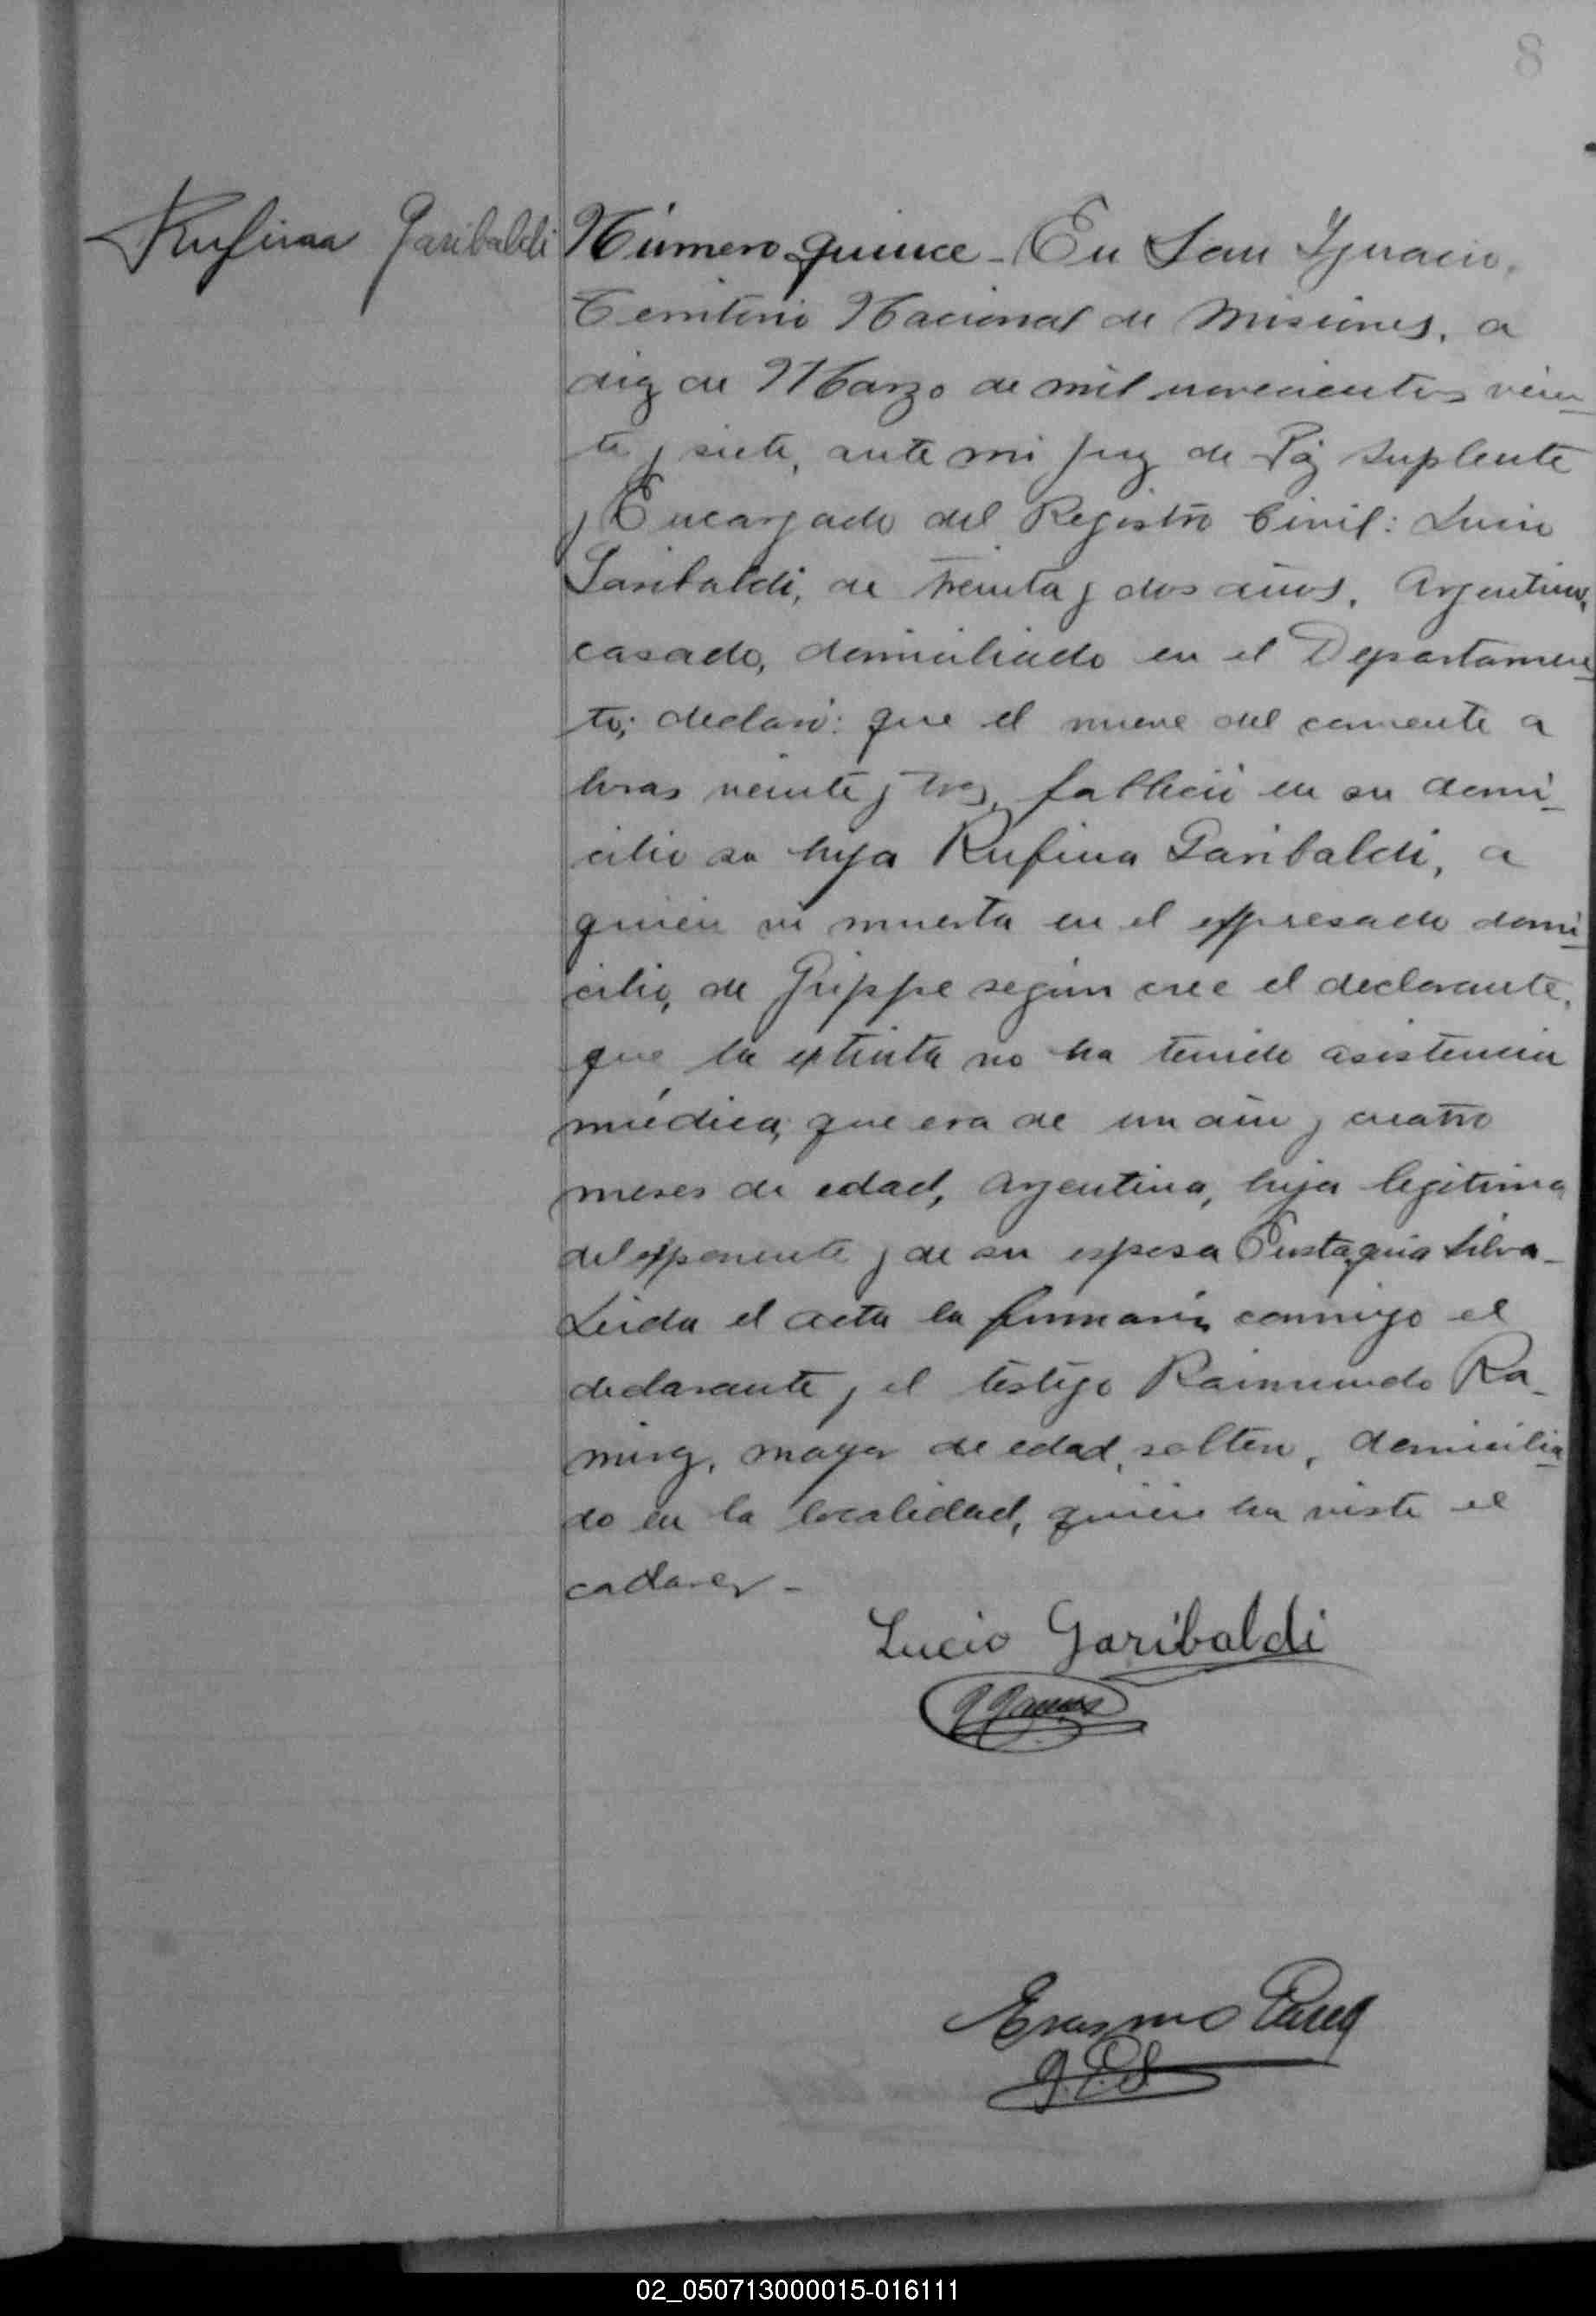 8
Rufina Garibaldi
Número quince - En San Ignacio,
Territorio Nacional de Misiones, a
diez de Marzo de mil novecientos vein-
te y siete, ante mi Juez de Páz Suplente
y Encargado del Registro Civil: Lucio
Garibaldi, de treinta y dos años, Argentino,
casado, domiciliado en el Departamen-
to; declaró: que el nueve del corriente a
horas veinte y tres, falleció en su domi-
cilio su hija Rufina Garibaldi, a
quién vi muerta en el expresado domi-
cilio, de Grippe según cree el declarante,
que la extinta no ha tenido asistencia
médica, que era de un año y cuatro
meses de edad, Argentina, hija legitima
del exponente y de su esposa Eustaquia Silva -
Leida el acta la firmarón conmigo el
declarante y el testigo Raimundo Ra-
mirez, mayor de edad, soltero, domicilia-
do en la localidad, quién ha visto el
cadaver -
Lucio Garibaldi
Erasmo Perez
J.P.S
02_050713000015-016111